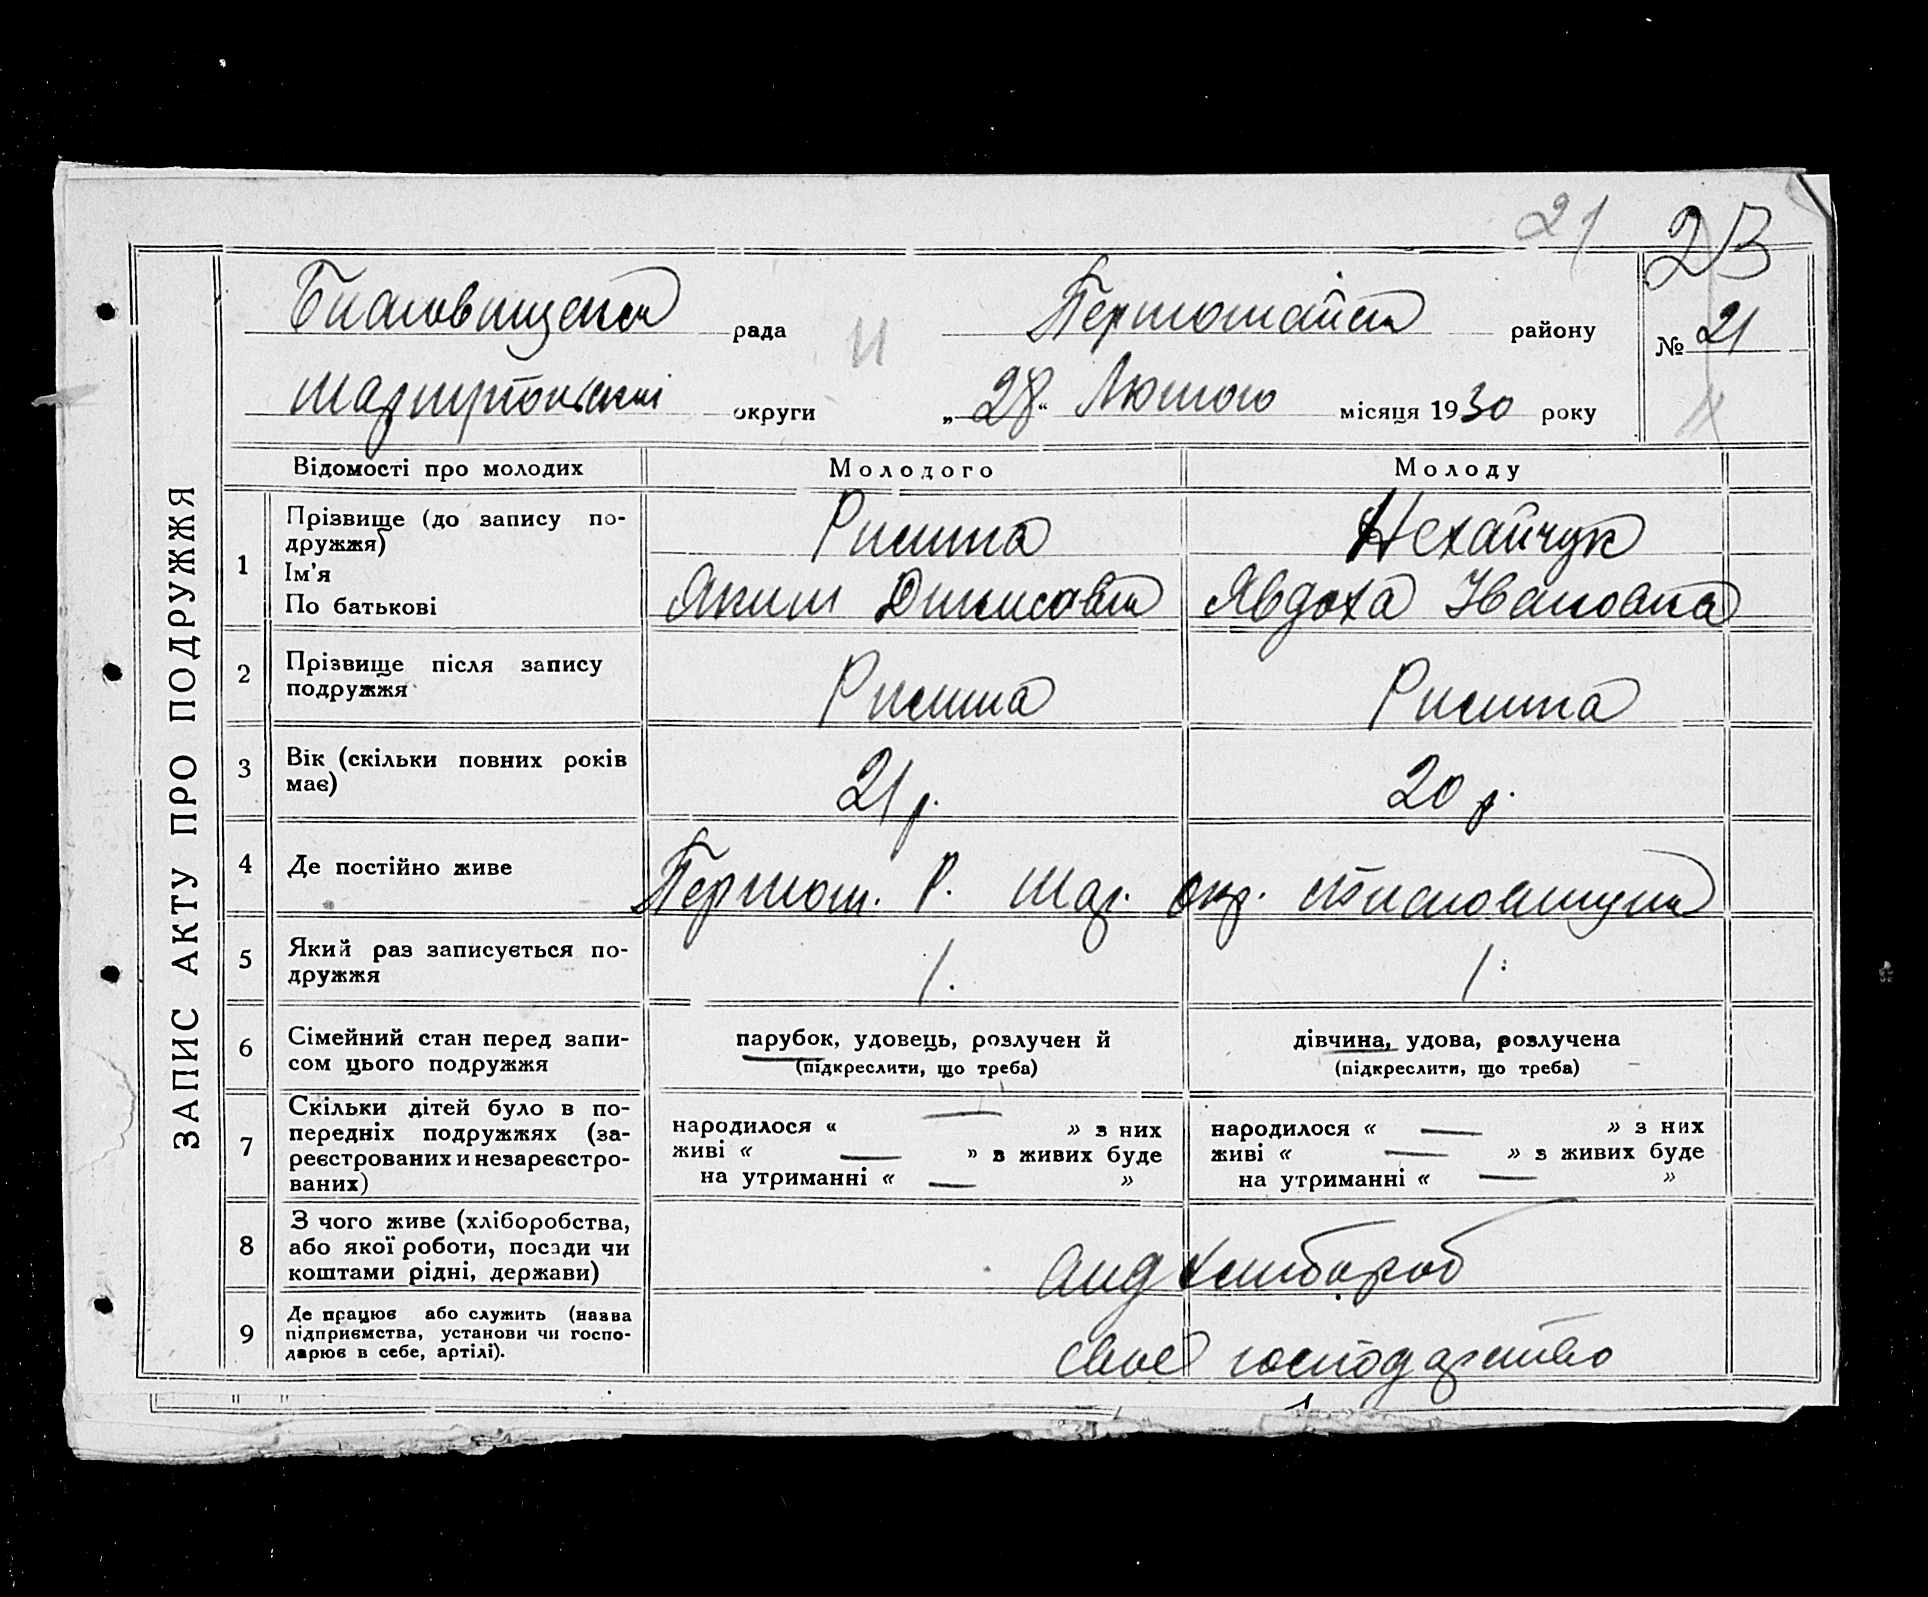 21 23
Благовищенск рада Первомайск району № 21
округи „28“ Лютого місяця 1930 року
ЗАПИС АКТУ ПРО ПОДРУЖЖЯ
Відомості про молодих Молодого Молоду
1 Прізвище (до запису по-
дружжя) Нехайчук
Ім'я
По батькові Яким Явдоха Івановна
2 Прізвище після запису
подружжя
3 Вік (скільки повних років
має) 21 р. 20 р.
4 Де постійно живе Р. Мар. окр.
5 Який раз записується по-
дружжя 1. 1.
6 Сімейний стан перед запи-
сом цього подружжя
парубок, удовець, розлучен й
(підкреслити, що треба)
дівчина, удова, розлучена
(підкреслити, що треба)
7 Скільки дітей було в по-
передніх подружжях (за-
реєстрованих и незареєстро-
ваних)
народилося « — » з них
живі « — » в живих буде
на утриманні « — »
народилося « — » з них
живі « — » з живих буде
на утриманні « — »
8 З чого живе (хліборобства,
або якої роботи, посади чи
коштами рідні, держави) хлибороб
9 Де працює або служить (назва
підприємства, установи чи госпо-
дарює в себе, артілі). своє господарство